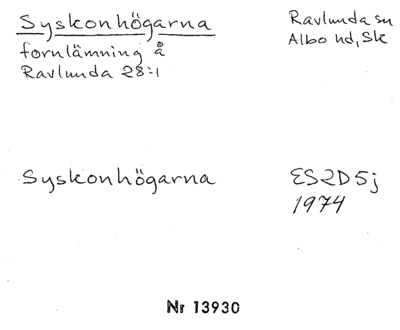 Syskonhögarna
fornlämning å
Ravlunda 28:1
Ravlunda sn
Albo hd, Sk
Syskonhögarna
ES2D5j
1974
Nr 13930